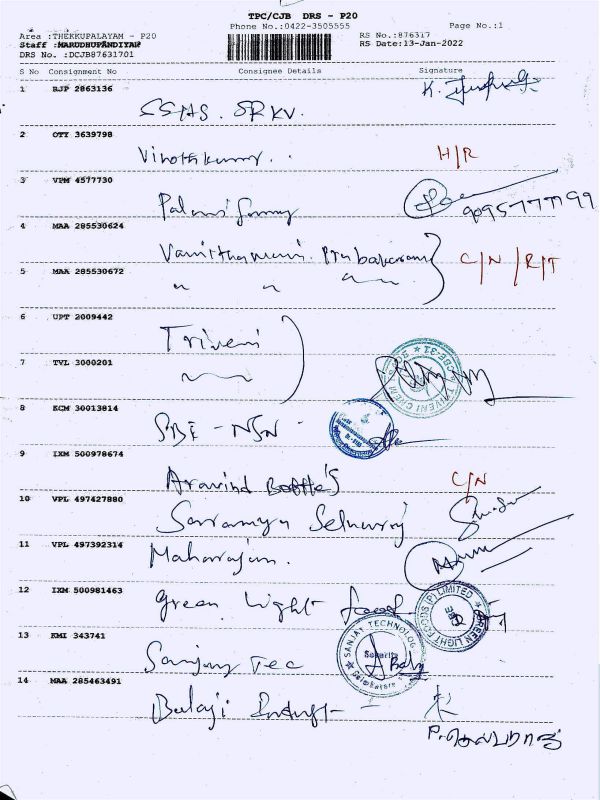 TPC/CJB DRS - P20
Phone No.:0422-3505555 Page No.:1
Area :THEKKUPALAYAM - P20 RS No.:876317
Staff :MARUDHUPANDIYAR RS Date:13-Jan-2022
DRS No. :DCJB87631701
S No Consignment No Consignee Details Signature
1 RJP 2863136
SSHS. SRKV. K.
2 OTY 3639798
Vinothkumar.. H/R
3 VPM 4577730
Palanisamy 9095777799
4 MAA 285530624
Vanithamani. Prabakaran C/N /R/T
5 MAA 285530672
" " "
6 UPT 2009442
Triveni
7 TVL 3000201
8 KCM 30013814
SBI - NSN -
9 IXM 500978674
Aravind Bottle's C/N
10 VPL 497427880
Saranya Selvaraj
11 VPL 497392314
Maharajan.
12 IXM 500981463
Green Light food
GREEN LIGHT FOODS (P) LIMITED
13 KMI 343741
Sanjay Tec
SANJAY TECHNOLOG
Security
14 MAA 285463491
Balaji